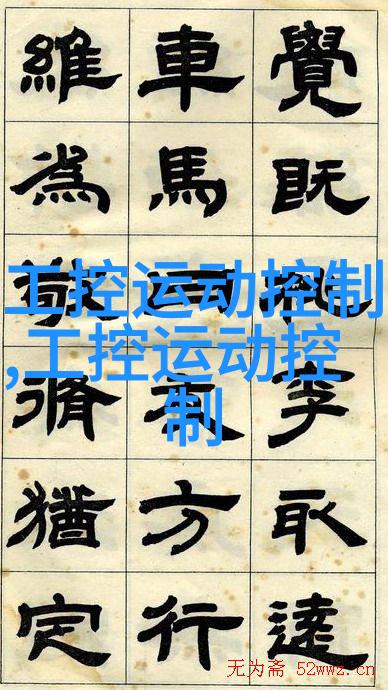 覺既李取達
車馬方行
維為敬脩猶定
工控运动控制
,工控运动控
制
无为斋 52wwz.cn